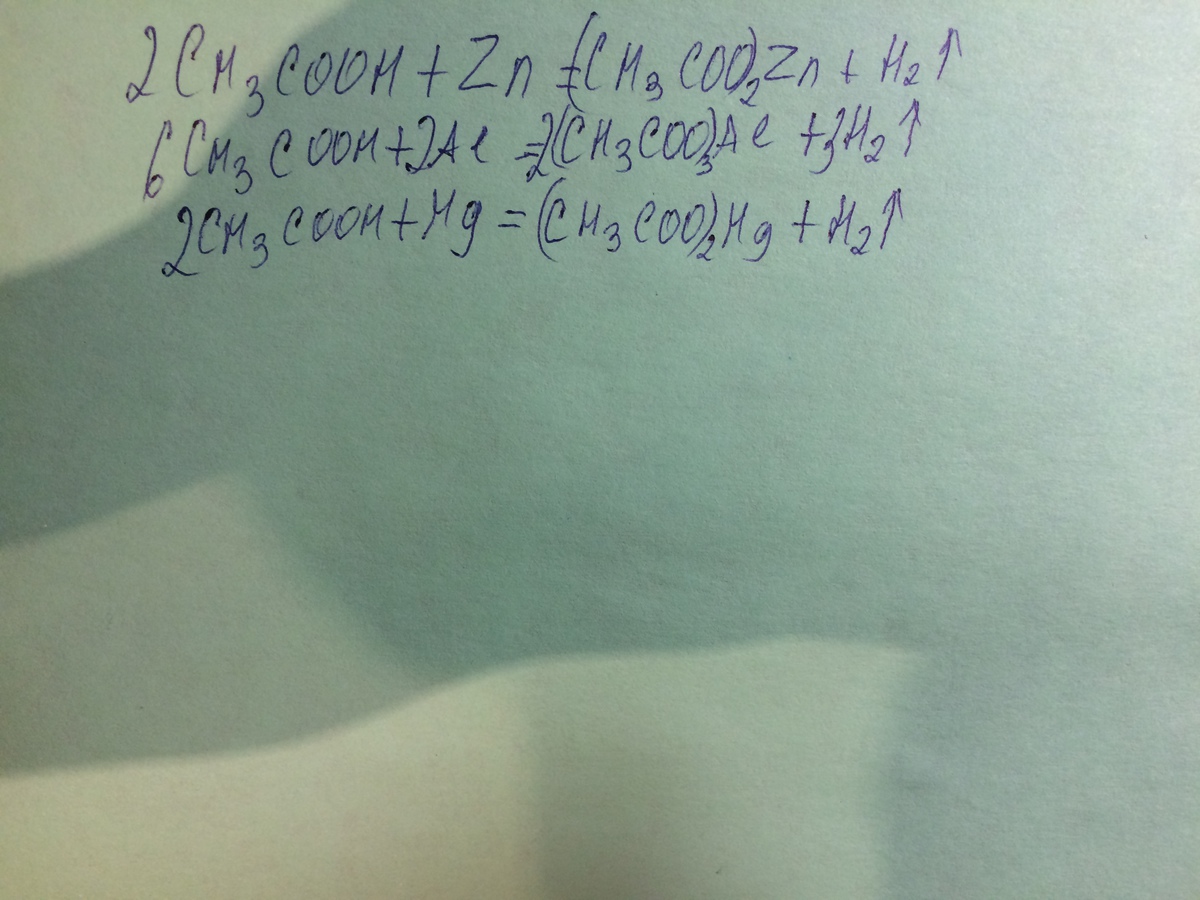 2CH₃COOH + Zn = (CH₃COO)₂Zn + H₂↑
6CH₃COOH + 2Al = 2(CH₃COO)₃Al + 3H₂↑
2CH₃COOH + Hg = (CH₃COO)₂Hg + H₂↑